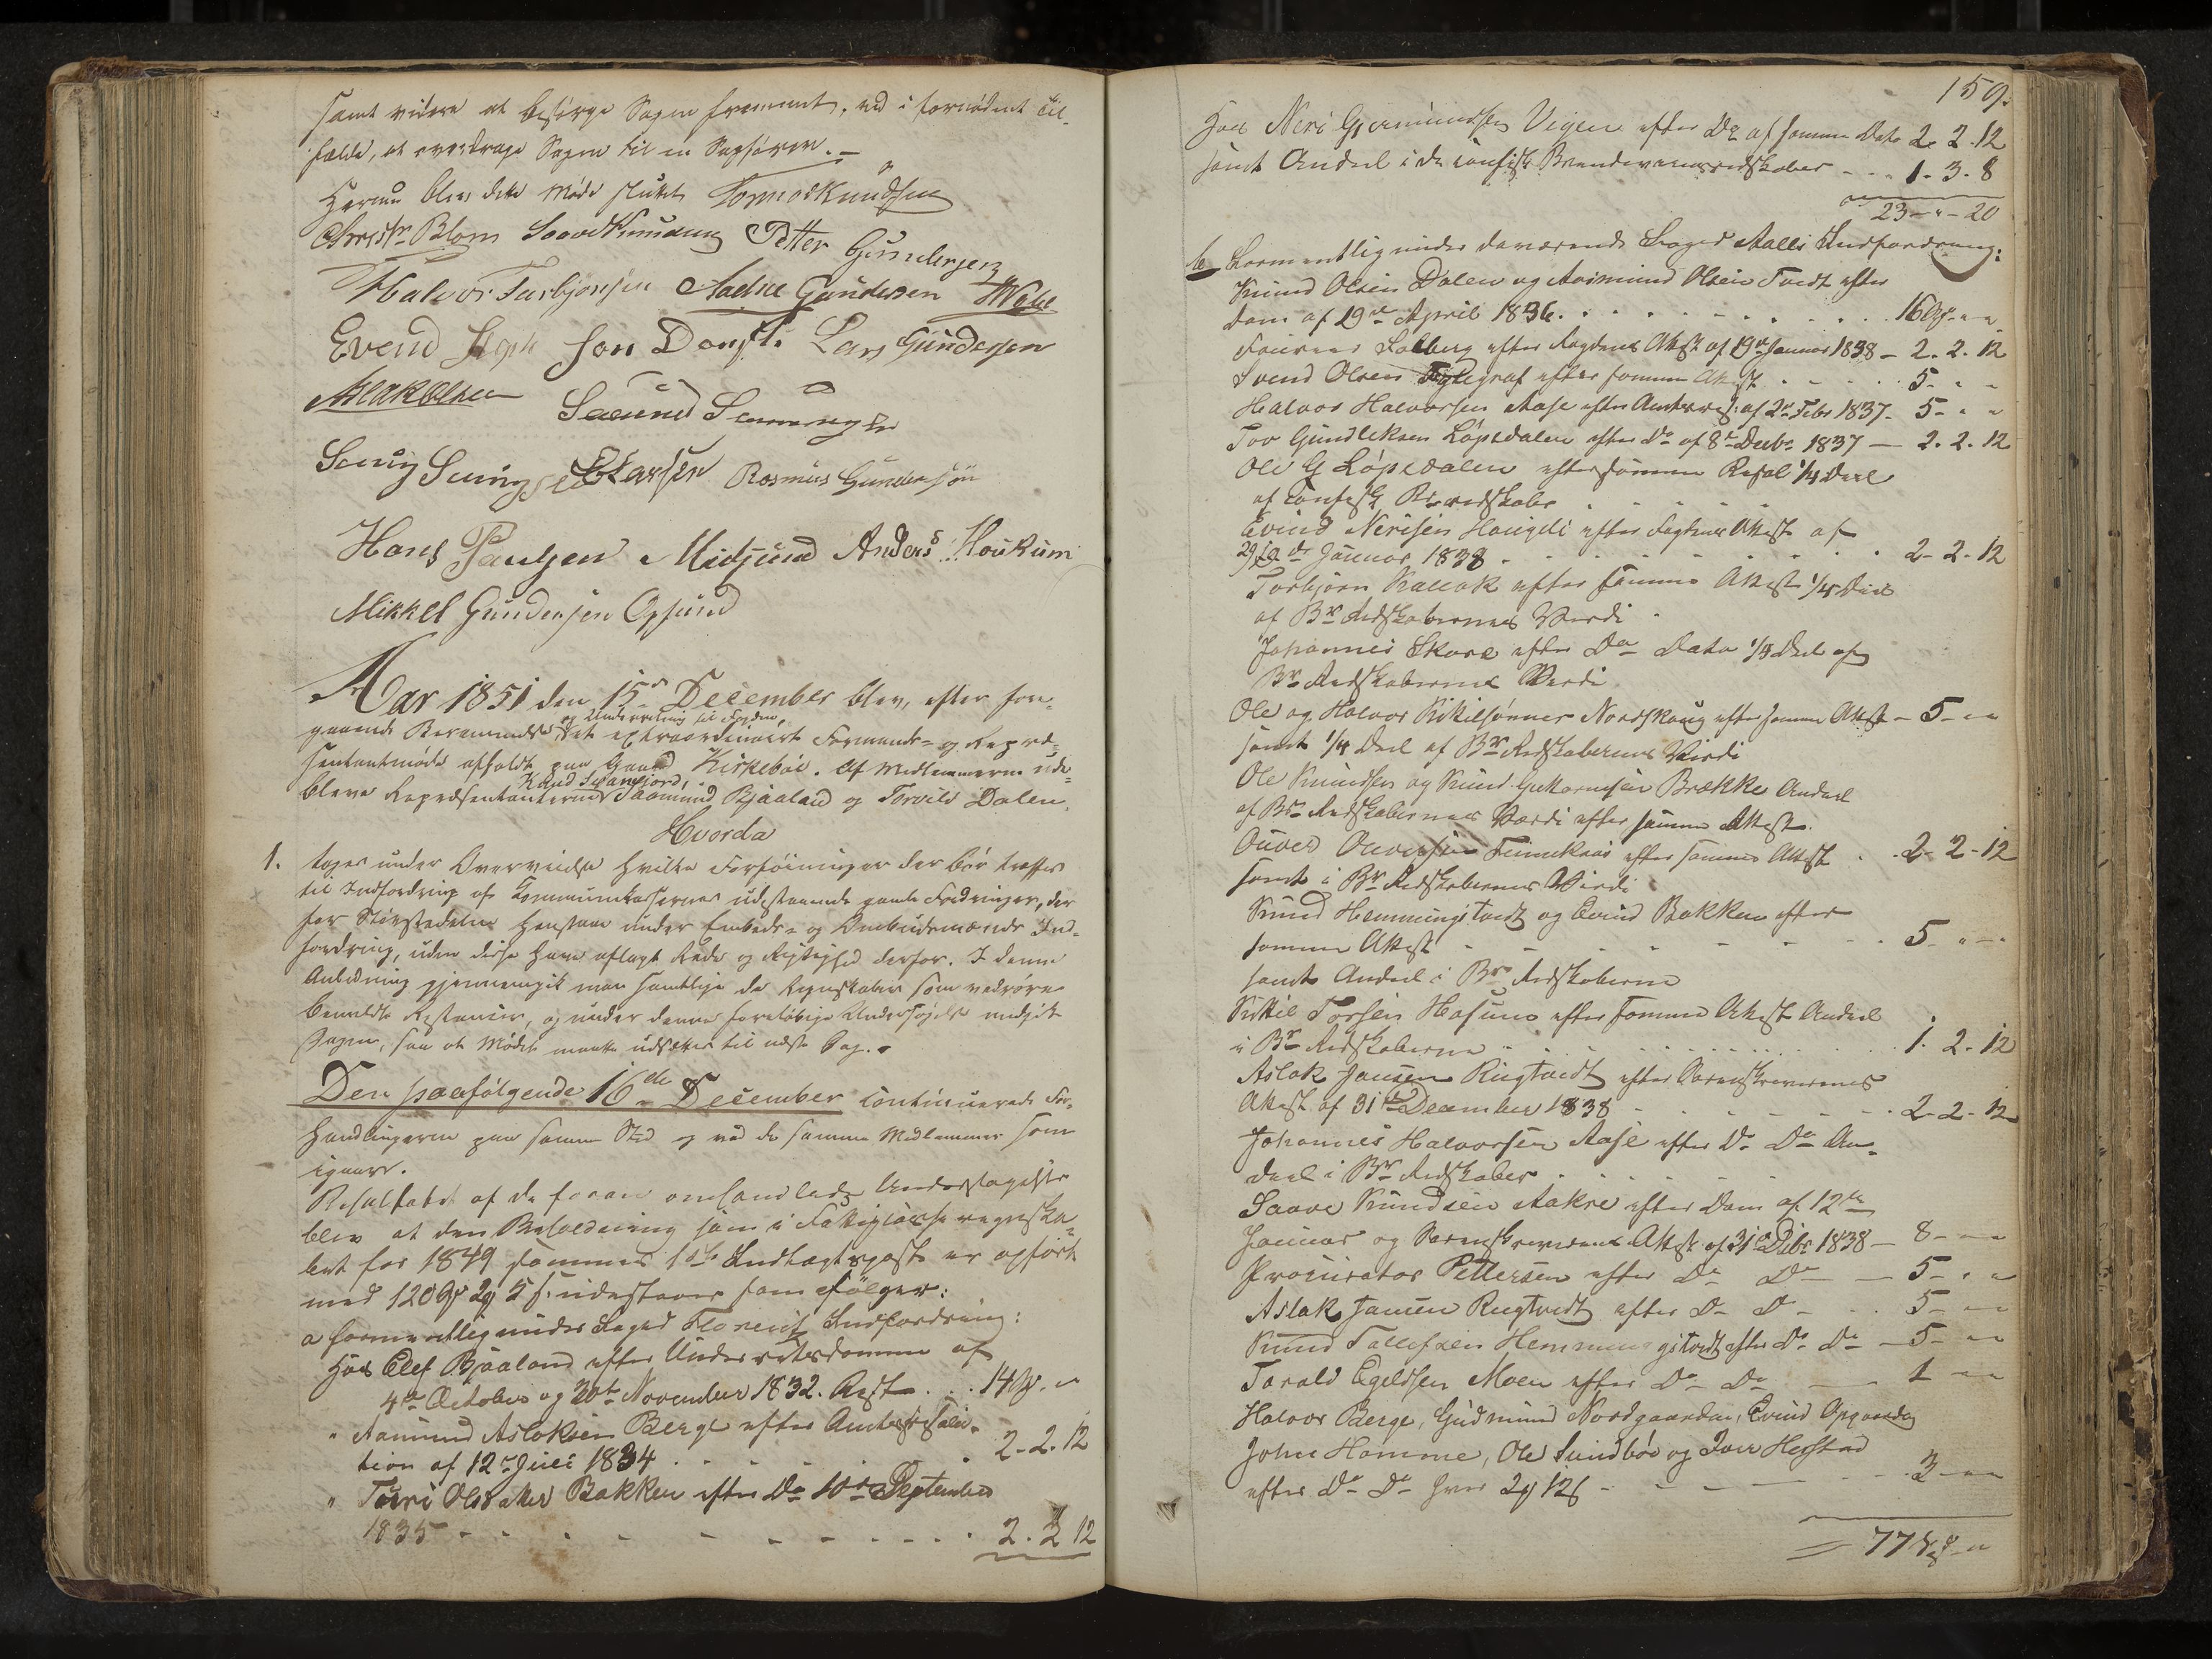 samt videre at besørge Sagen fremmet, ved i fornødent Til-
fælde, at overdrage Sagen til en Sagfører.—
Hermed blev dette Møde sluttet TormodKnudsen
Christn Blom Saavekunudsen Petter Gundersen
Halvor Torbjønsen Aadne Gundersen HWahl
Evend Jon Lars Gundersen
Aslakolsen Saamund
EELarsen Rasmus Gundersøn
Hans Paulsen Midsund Anders Houkum
Mikkel Gundersen Opsund
Aar 1851 den 15de December blev, efter fore-
gaaende Berammelse og Underretning til Fogden, et extraordinairt Formands- og Repræ-
sentantmøde afholdt paa Gaard Kirkebøe. Af Medlemmerne ude-
bleve Repræsentanterne Knud Svanejord, Saamund Bjaaland og Torvild Dalen.
Hvorda
1. toges under Overveielse hvilke Forføininger der bør træffes
til Indfordring af Kommunekassernes udestaaende gamle Fordringer, der
for Størstedelen henstaae under Embeds- og Ombudsmænds Ind-
fordring, uden disse have aflagt Rede og Rigtighed derfor. I denne
Anledning gjennemgik man samtlige de Regnskaber som vedrøre
bemeldte Restancer, og under denne foreløbige Undersøgelse medgik
Dagen, saa at Mødet maatte udsættes til næste Dag.
Den paafølgende 16de December continuerede For-
handlingerne paa samme Sted og ved de samme Medlemmer som
igaar.
Resultatet af de foran omhandlede Undersøgelser
blev at den Beholdning som i Fattigkasseregnska-
bet for 1849 sammes 1ste Indtægtspost er opført
med 120 2 5 s. udestaaer som følger:
a formentlig under Foged Florentz Indfordring:
Hos Elef Bjaaland efter Underretsdomme af
4de October og 20de November 1832. Rest . . . 14
" Aamund Aslaksen Berge efter Amtsresolu-
tion af 12te Juli 1834 . . . 2-2.12
" Tarri Olsbakken efter Do 10de September
1835 - - - - - - 2.2 12
159.
Hos Neri Gjermundsen Vigen efter Do af samme Dato 2. 2.12
samt Andeel i de confisk. Brændevinsredskaber - - - 1.3.8
23-"-20
b Formentlig under daværende Foged Aalls Indfordring:
Knud Olsen Dalen og Aasmund Olsen Tvedt efter
Dom af 19de April 1836. . . . . . . 16
Solberg efter Fogdens Attest af 19de Januar 1838 - 2. 2. 12
Svend Olsen efter samme Attest . . . 5- " -
Halvor Halvorsen Aase efter Amtsres: af 2de Febr 1837. 5- " "
Tov Gundleksen Løpedalen efter Do af 8de Decbr 1837 — 2. 2. 12
Ole G Løpedalen efter samme Resol 1/4 Deel
af confisk. Br.redskaber
Evind Nerisen Haugeli efter Fogdens Attest af
29de Januar 1838 . . . . . . . 2-2-12
Torbjørn Kallak efter samme Attest 1/4 Deel
af Br Redskabernes Værdi
Johannes Skare efter Do Dato 1/4 Deel af
Br Redskabernes Værdi.
Ole og Halvor Kikilsønner Nordskoug efter samme Attest - 5 - "
samt 1/4 Deel af Br Redskabernes Værdi
Ole Knudsen og Knud Guttormsen Brække Andeel
af Br Redskabernes Værdi efter samme Attest.
Ouver Ouversen efter samme Attest . . 2- 2-12
samt i Br Redskabernes Værdi
Knud Hemmingstvedt og Evind Bakken efter
samme Attest - - - - - - 5- " -
samt Andeel i Br Redskaberne
Kittil Torsen Hasuno efter samme Attest Andeel
i Br Redskaberne . . . . . . 1. 2.12
Aslak Jansen Rugtvedt efter Sorenskriverens
Attest af 31te December 1838 - - - - - 2-2-12
Johannes Halvorsen Aase efter Do Do An-
deel i Br Redskaber . .
Saave Knudsen Aakre efter Dom af 12te
Januar og Sorenskriverens Attest af 31te Decbr 1838 — 8- - "
Procurator Pettersen efter Do Do — — 5- " "
Aslak Jansen Rugtvedt efter Do Do - - . 5- - "
Knud Tallefsen Hemmingstvedt efter Do Do - 5- - "
Tarald Egeldsen Moen efter Do Do — - 1 - "
Halvor Berge, Gudmund Nordgaarden, Evind Opgaarden
John Homme, Ole Sundbøe og Iver Hegstad
efter Do Do hver 2 12 s - - - - - 3 - "
= 77